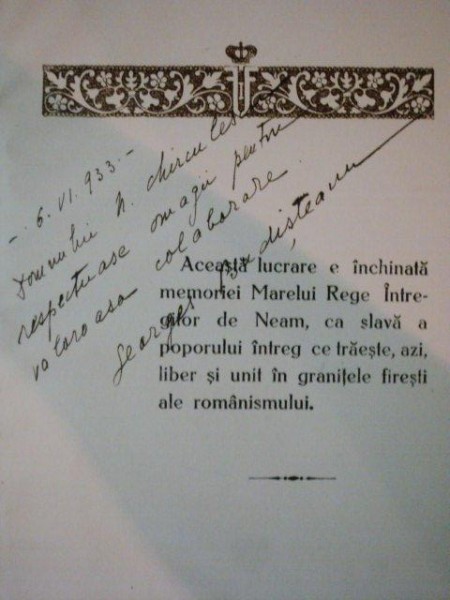 - 6. VI. 933. -
Domnului N. Chirculescu
respectuase omagii pentru
valoroasa colaborare.
Georges
Această lucrare e închinată
memoriei Marelui Rege Între-
gitor de Neam, ca slavă a
poporului întreg ce trăește, azi,
liber și unit în granițele firești
ale românismului.